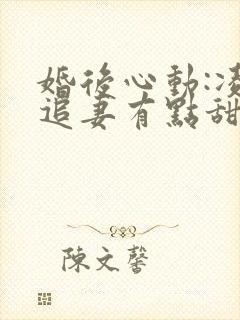 婚後心動:凌
追妻有點甜
陳文馨